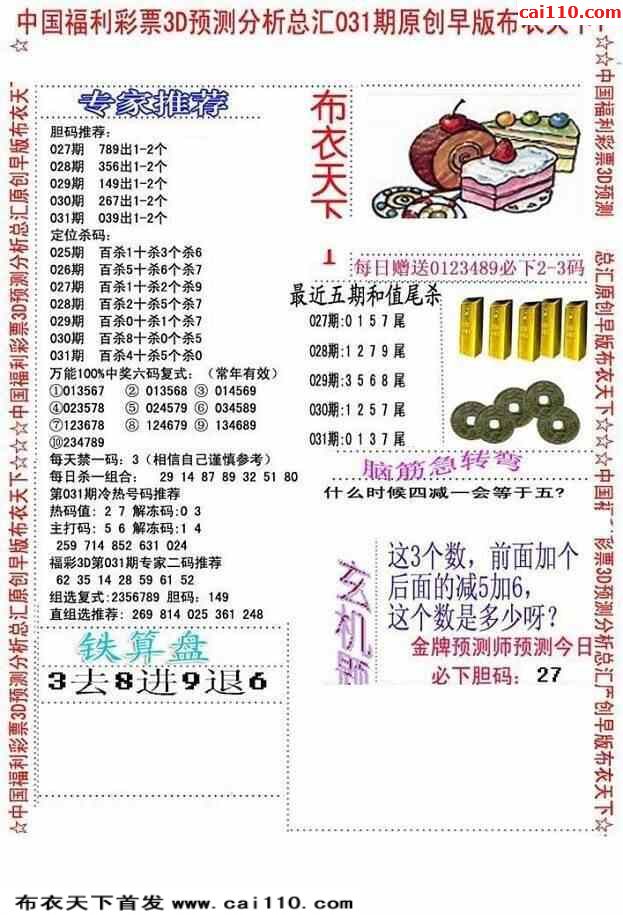 cai110.com
中国福利彩票3D预测分析总汇031期原创早版布衣天下
专家推荐
胆码推荐:
027期 789出1-2个
028期 356出1-2个
029期 149出1-2个
030期 267出1-2个
031期 039出1-2个
定位杀码:
025期 百杀1十杀3个杀6
026期 百杀5十杀6个杀7
027期 百杀1十杀2个杀9
028期 百杀2十杀5个杀7
029期 百杀0十杀1个杀7
030期 百杀8十杀0个杀5
031期 百杀4十杀5个杀0
万能100%中奖六码复式:(常年有效)
①013567 ② 013568 ③ 014569
④023578 ⑤ 024579 ⑥ 034589
⑦123678 ⑧ 124679 ⑨ 134689
⑩234789
每天禁一码:3(相信自己谨慎参考)
每日杀一组合: 29 14 87 89 32 51 80
第031期冷热号码推荐
热码值: 2 7 解冻码:0 3
主打码: 5 6 解冻码:1 4
259 714 852 631 024
福彩3D第031期专家二码推荐
62 35 14 28 59 61 52
组选复式:2356789 胆码: 149
直组选推荐: 269 814 025 361 248
铁算盘
3去8进9退6
布衣天下
1
每日赠送0123489必下2-3码
最近五期和值尾杀
027期:0 1 5 7 尾
028期:1 2 7 9 尾
029期:3 5 6 8 尾
030期:1 2 5 7 尾
031期:0 1 3 7 尾
脑筋急转弯
什么时候四减一会等于五?
玄机题
这3个数,前面加个
后面的减5加6,
这个数是多少呀?
金牌预测师预测今日
必下胆码: 27
☆中国福利彩票3D预测分析总汇原创早版布衣天下☆☆☆中国福利彩票3D预测分析总汇原创早版布衣天
☆☆中国福利彩票3D预测
总汇原创早版布衣天下☆☆☆中国福
彩票3D预测分析总汇原创早版布衣天下☆
布衣天下首发 www.cai110.com